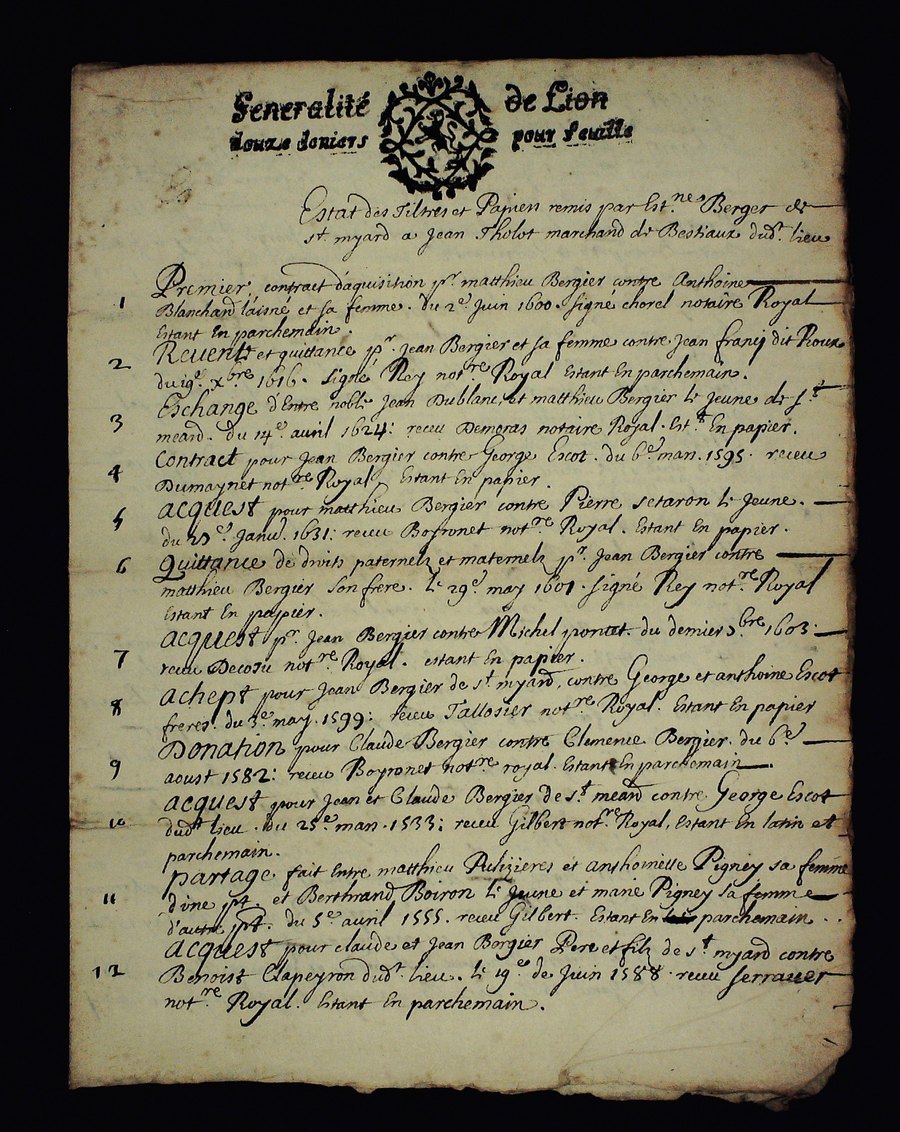 Generalité de Lion
douze deniers pour feuille
Estat des Tiltres et Papien remis par Est.ne Berger de
st. myard a Jean Tholot marchand de Bestiaux dud.t lieu
1 Premier, contract d'aquisition pr. matthieu Bergier contre Anthoine
Blanchard l'aisné et sa femme. du 2e. Juin 1600. signé chorel notaire Royal
Estant En parchemain.
2 Revente et quittance pr. Jean Bergier et sa femme contre Jean franç dit Roux
du 19e. xbre 1616. signé Rey not.re Royal Estant En parchemain.
3 Eschange d'Entre noble Jean Dublanc, et matthieu Bergier le Jeune de st.
meard. du 14e. avril 1624: receu Demoras notaire Royal. Est.t En papier.
4 Contract pour Jean Bergier contre George Escot. du 6e. man. 1595. receu
Dumaynet not.re Royal, Estant En papier.
5 acquest pour matthieu Bergier contre Pierre setaron le Jeune.
du 23e. Janv. 1631: receu Boyronet not.re Royal. Estant En papier.
6 Quittance de droits paternelz et maternelz pr. Jean Bergier contre
matthieu Bergier son frere. le 29e. may 1601. signé Rey not.re Royal
Estant En papier.
7 acquest pr. Jean Bergier contre Michel poncet. du dernier bre 1603.
receu not.re Royal. estant En papier.
8 achept pour Jean Bergier de st. myard, contre George et anthoine Escot
freres. du 3e. may. 1599: receu Tallosier not.re Royal. Estant En papier
9 Donation pour Claude Bergier contre Clemence Bergier. du 6e.
aoust 1582: receu Boyronet not.re royal. Estant En parchemain.
10 acquest pour Jean et Claude Bergier de st. meard contre George Escot
dud.t lieu. du 25e. man. 1533: receu Gilbert not.re Royal, Estant En latin et
parchemain.
11 partage fait Entre matthieu et anthoinette Pigney sa femme
d'une pt. et Berthrand Boiron le Jeune et marie Pigney sa femme
d'autre pt. du 5e. avril 1555. receu Gilbert. Estant En parchemain.
12 acquest pour claude et Jean Bergier Pere et filz de st. myard contre
Benoist Clapeyron dud.t lieu. le 19e. de Juin 1588. receu serrauer
not.re Royal. Estant En parchemain.